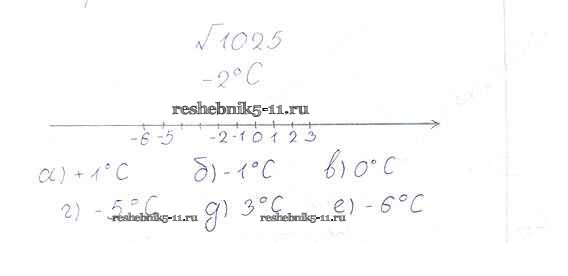 √1025
-2°C
reshebnik5-11.ru
-6 -5 -2 -1 0 1 2 3
а) +1°C б) -1°C в) 0°C
г) -5°C д) 3°C е) -6°C
reshebnik5-11.ru reshebnik5-11.ru